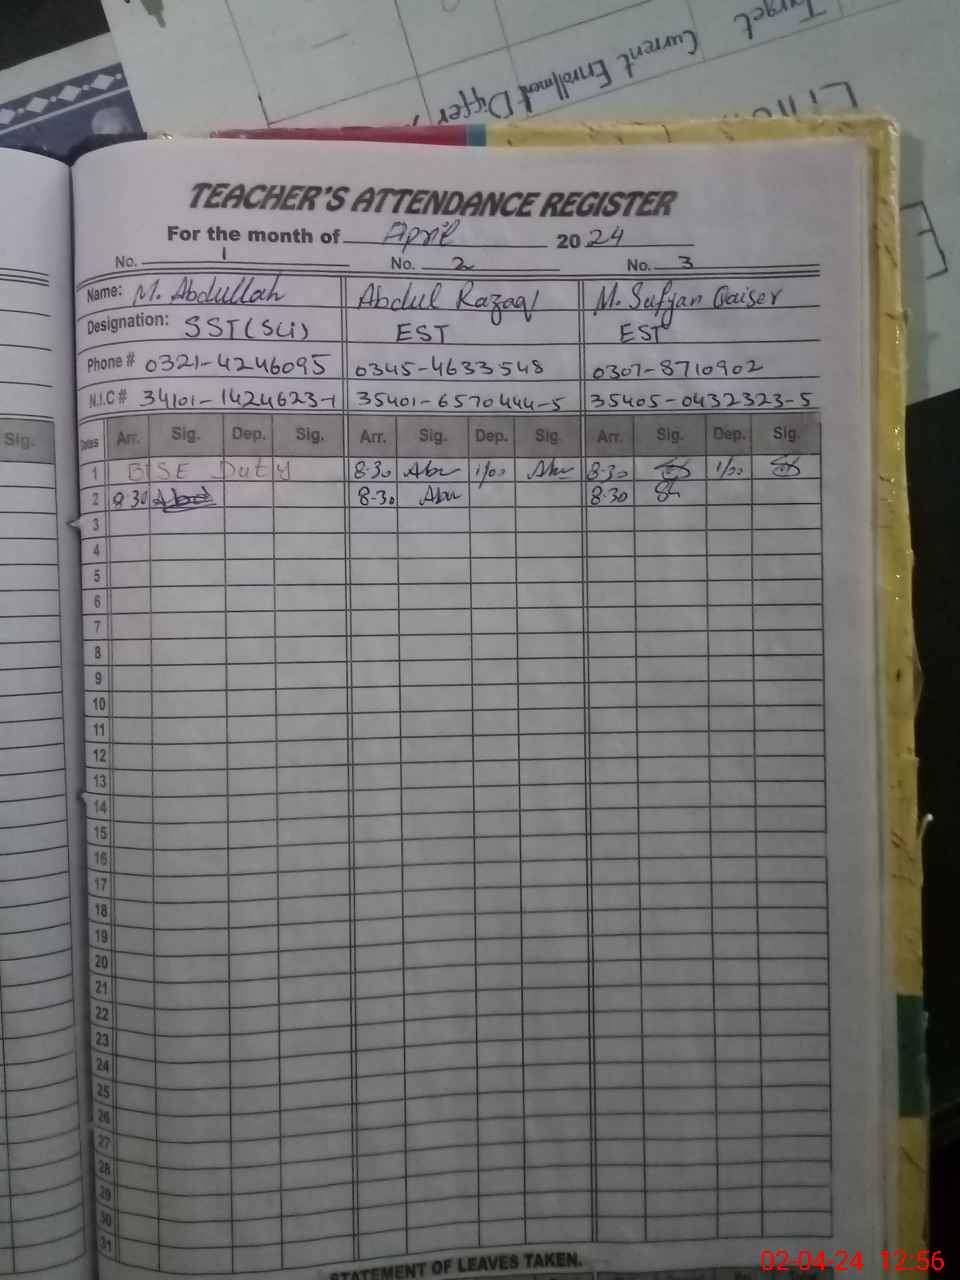 Target
Current Enrollment
Differ
TEACHER'S ATTENDANCE REGISTER
For the month of April 2024
No. 1 No. 2 No. 3
Name: M. Abdullah Abdul Razaq M. Sufyan Qaiser
Designation: SST(Sci) EST EST
Phone # 0321-4246095 0345-4633548 0307-8710902
N.I.C # 34101-1424623-1 35401-6570444-5 35405-0432323-5
Sig.
Dates Arr. Sig. Dep. Sig. Arr. Sig. Dep. Sig. Arr. Sig. Dep. Sig.
1 BISE Duty 8-30 Abu 1/00 Abu 8-30 1/00
2 8-30 8-30 Abu 8-30
3
4
5
6
7
8
9
10
11
12
13
14
15
16
17
18
19
20
21
22
23
24
25
26
27
28
29
30
31
STATEMENT OF LEAVES TAKEN.
02-04-24 12:56